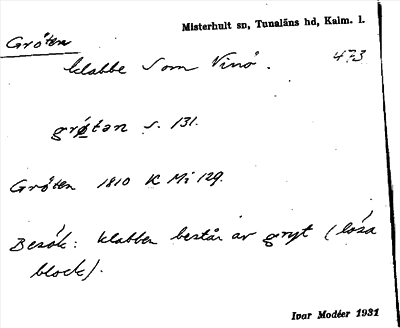 Misterhult sn, Tunaläns hd, Kalm. l.
Gröten
klabbe som Vinö. 4 3
grǿtən s. 131.
Gröten 1810 K Mi 129.
Besök: klabben består av gryt (lösa
block).
Ivar Modéer 1931